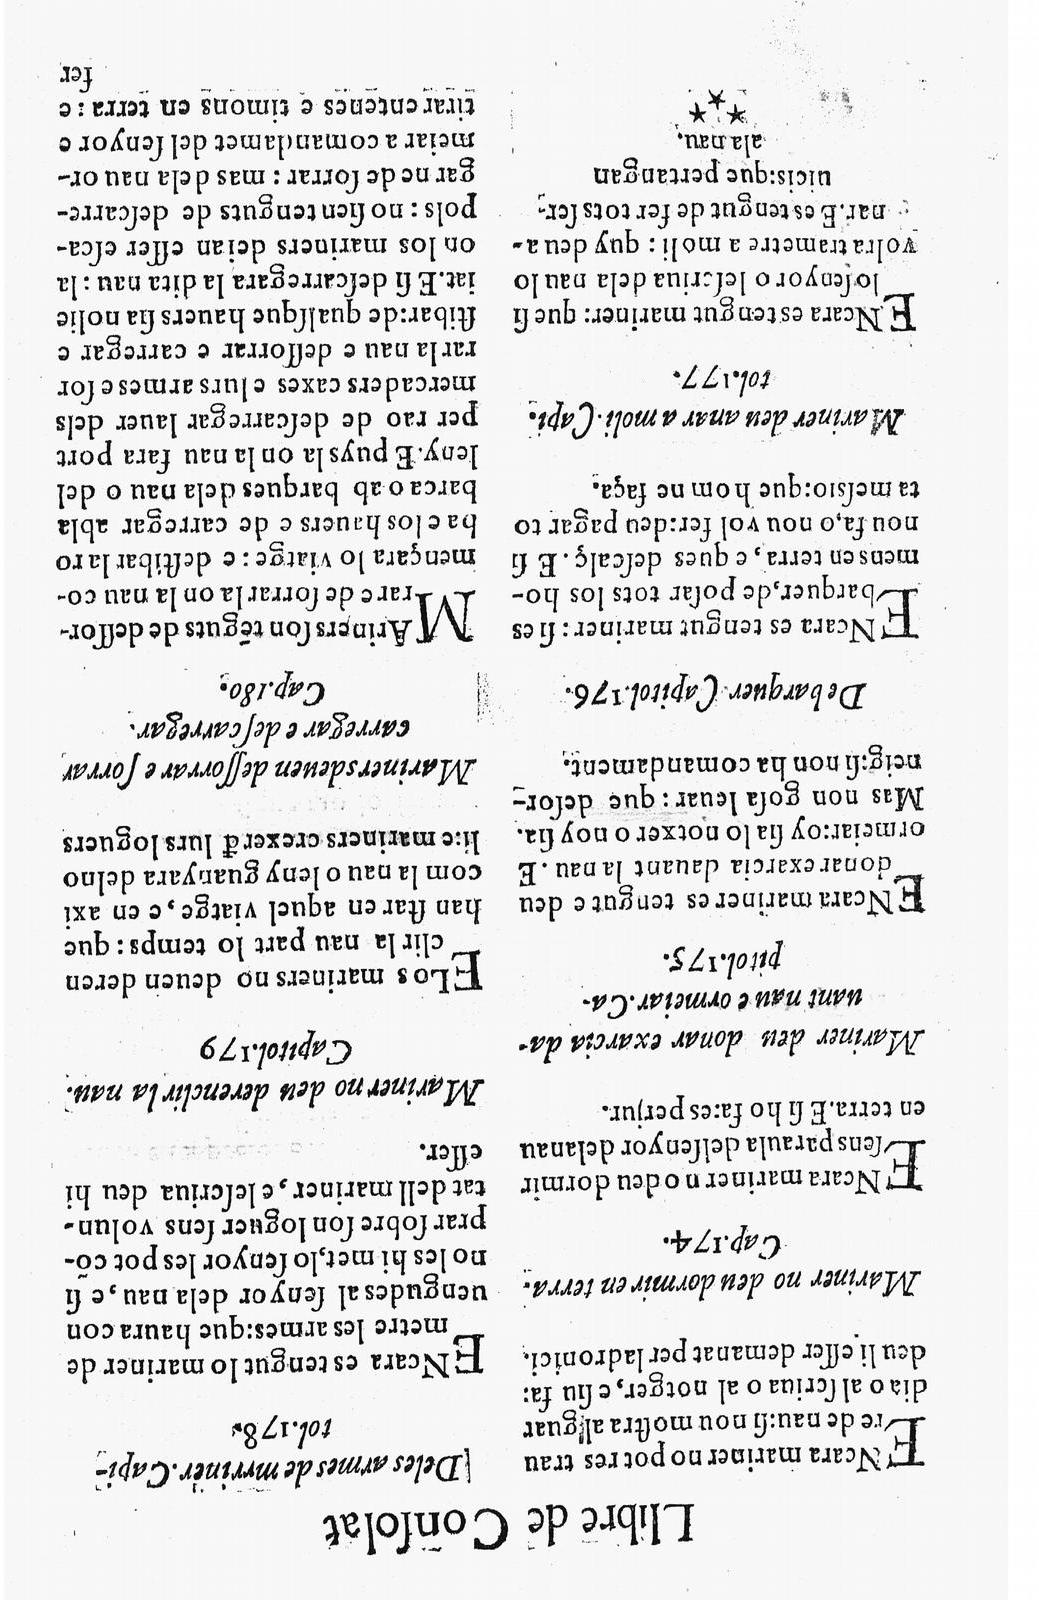 Llibre de Conſolat
ENcara mariner no pot res trau
re de nau: ſi nou moſtra al guar
dia o al ſcriua o al notger, e ſiu fa:
deu li eſſer demanat per ladronici.
Mariner no deu dormir en terra.
Cap.174.
ENcara mariner no deu dormir
ſens paraula del ſenyor dela nau
en terra. E ſi ho fa: es perjur.
Mariner deu donar exarcia da-
uant nau e ormeiar. Ca-
pitol.175.
ENcara mariner es tengut e deu
donar exarcia dauant la nau. E
ormeiar: oy ſia lo notxer o noy ſia.
Mas non goſa leuar: que deſor-
neig: ſi non ha comandament.
De barquer. Capitol.176.
ENcara es tengut mariner: ſi es
barquer, de poſar tots los ho-
mens en terra, e ques deſcalç. E ſi
nou fa, o nou vol fer: deu pagar to
ta meſsio: que hom ne faça.
Mariner deu anar a moli. Capi.
tol.177.
ENcara es tengut mariner: que ſi
lo ſenyor o leſcriua dela nau lo
volra trametre a moli: quy deu a-
nar. E es tengut de fer tots ſer-
uicis: que pertangan
ala nau.
Deles armes de mariner. Capi-
tol.178.
ENcara es tengut lo mariner de
metre les armes: que haura con
uengudes al ſenyor dela nau, e ſi
no les hi met, lo ſenyor les pot cō-
prar ſobre ſon loguer ſens volun-
tat dell mariner, e leſcriua deu hi
eſſer.
Mariner no deu derenclir la nau.
Capitol.179
ELos mariners no deuen deren
clir la nau part lo temps: que
han ſtar en aquel viatge, e en axi
com la nau o leny guanyara delno
lit: e mariners crexer đ lurs loguers
Mariners deuen deſſorrar e ſorrar
carregar e deſcarregar.
Cap.180.
MAriners ſon tēguts de deſſor-
rar e de ſorrar la on la nau co-
mençara lo viatge: e deſtibar la ro
ba e los hauers e de carregar abla
barca o ab barques dela nau o del
leny. E puys la on la nau fara port
per rao de deſcarregar lauer dels
mercaders caxes e lurs armes e ſor
rar la nau e deſſorrar e carregar e
ſtibar: de qualſque hauers ſia nolie
iat. E ſi deſcarregara la dita nau: la
on los mariners deian eſſer eſca-
pols: no ſien tenguts de deſcarre-
gar ne de ſorrar: mas dela nau or-
meiar a comandamet del ſenyor e
tirar entenes e timons en terra: e
fer